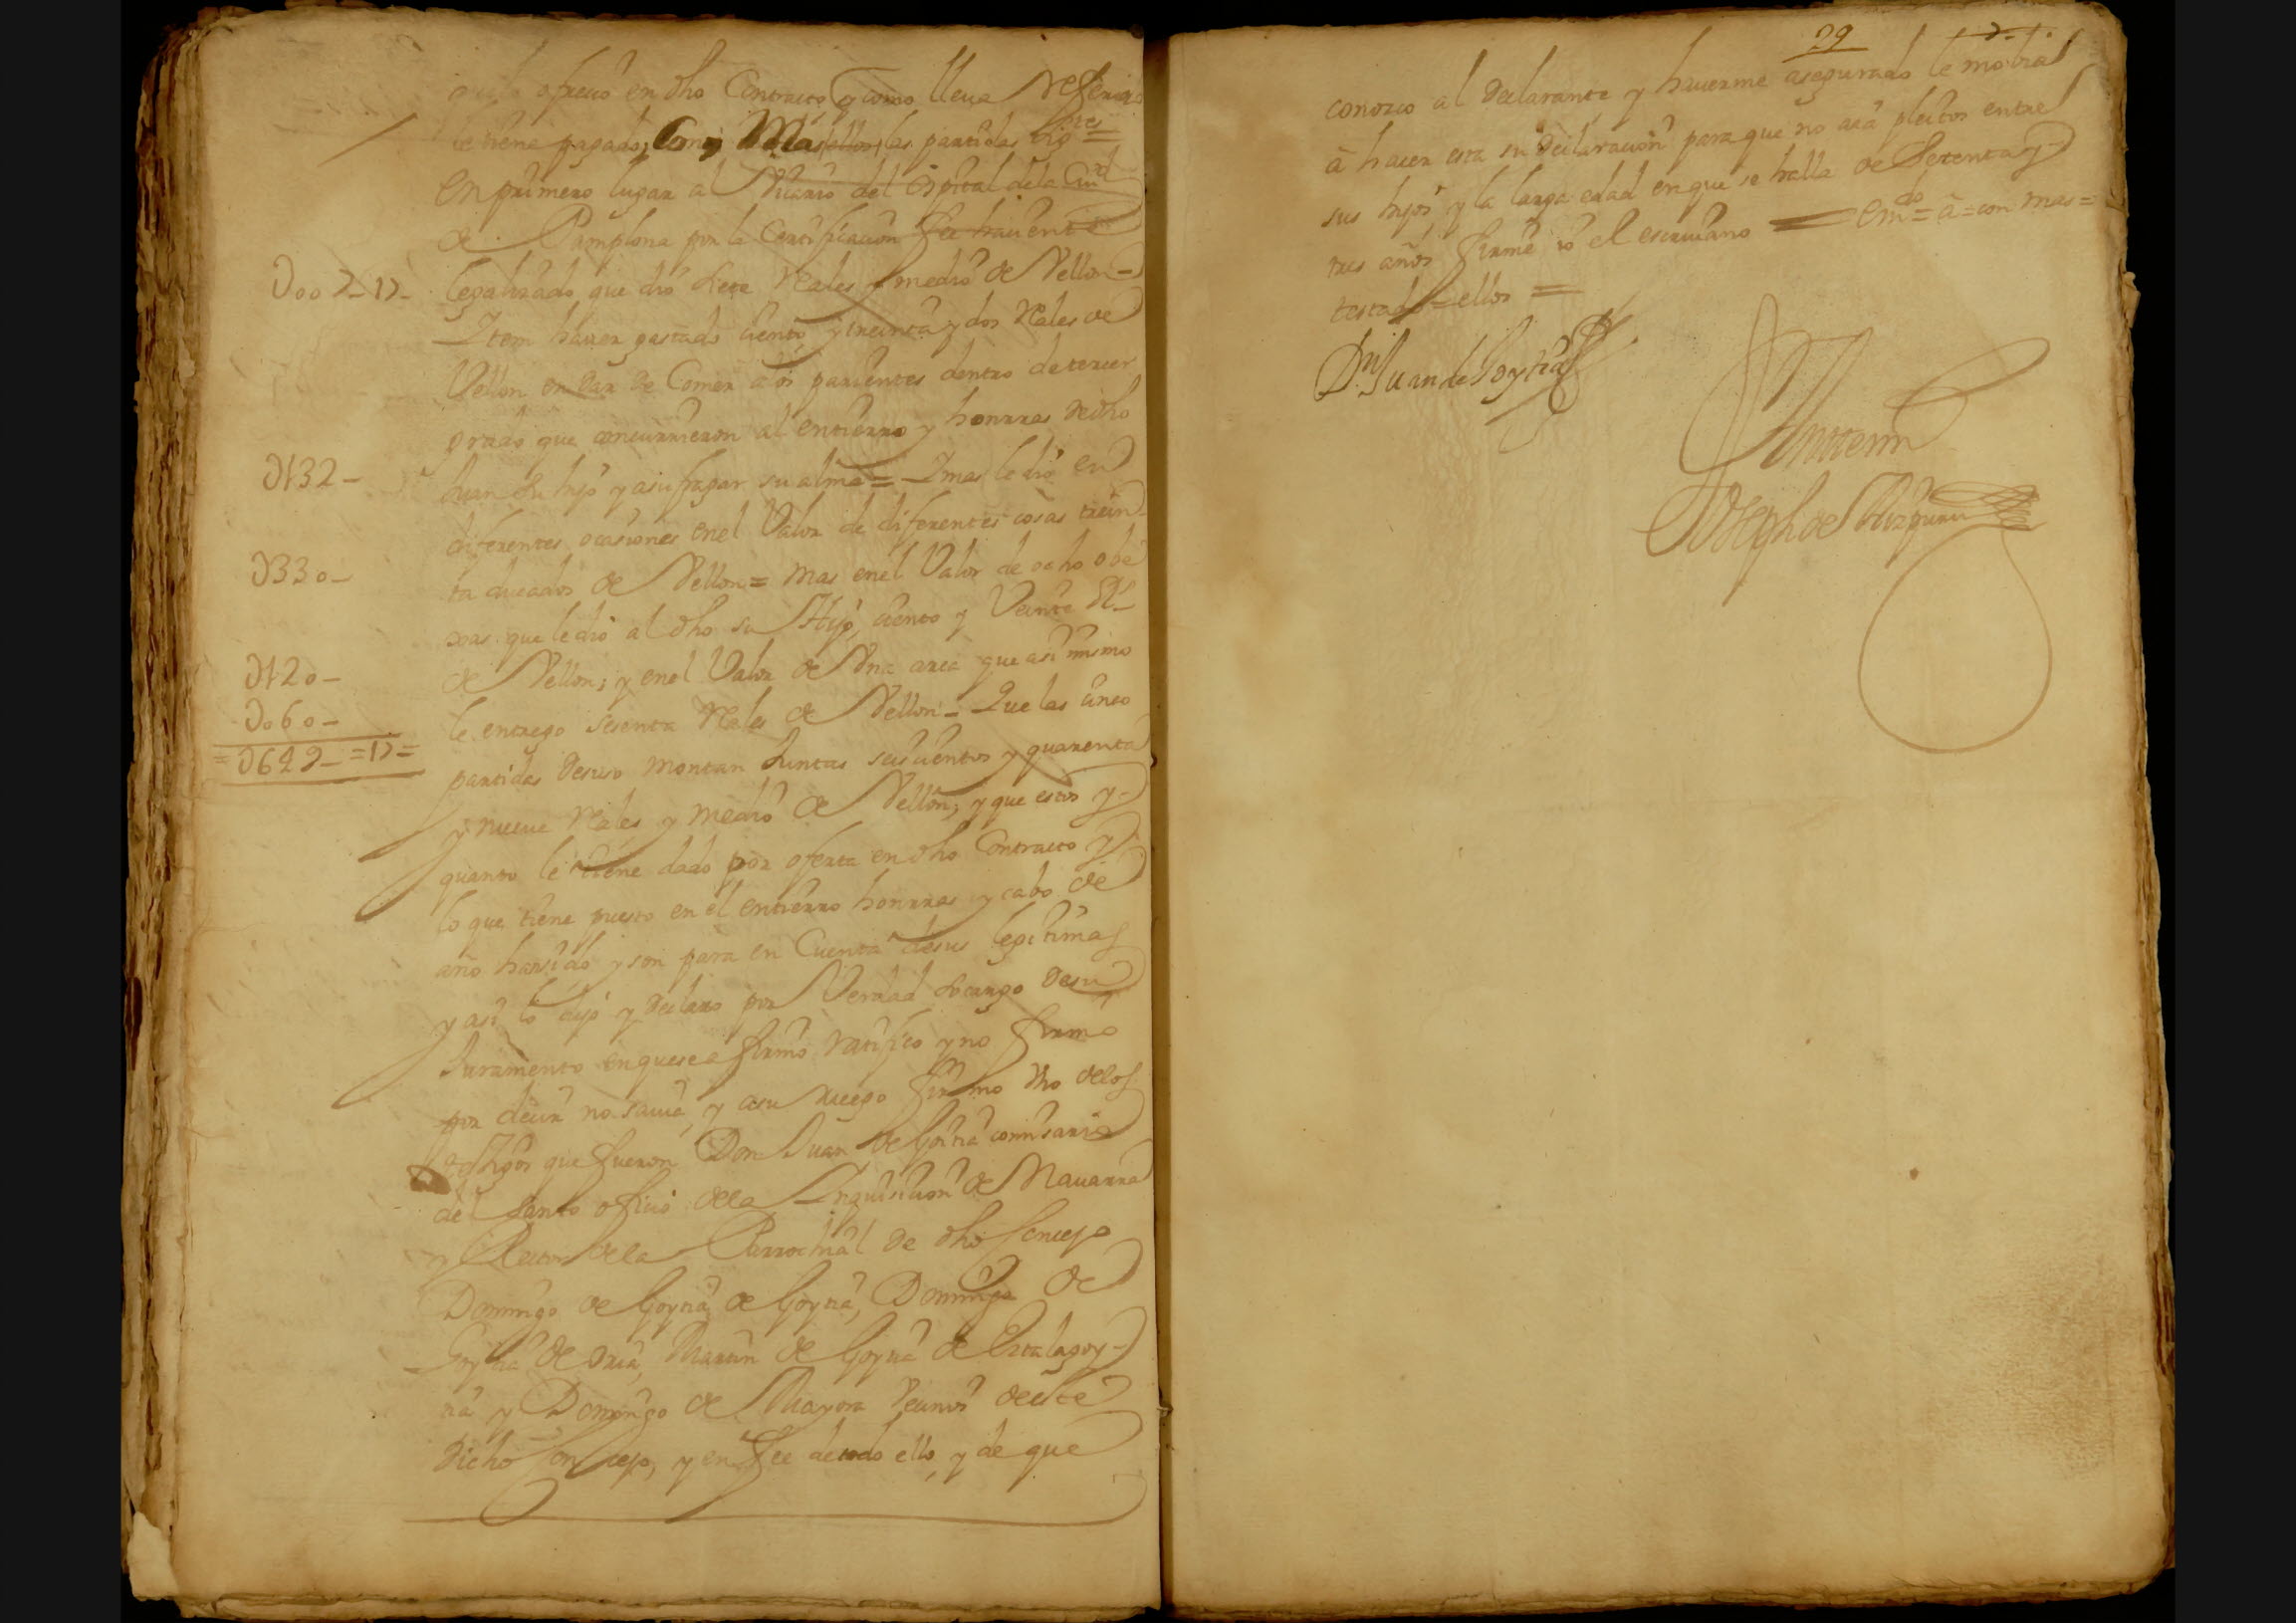 ofrecio en dho Contrato y como lleua referido
le tiene pagado, con mas ellos las partidas sigtes =
en primero lugar al Vicario del Ospital dela Ciud
de Pamplona por la Certificacion fee haciente
D007-17- legalizado que dio siete reales y medio de Vellon -
Item hauer gastado ciento y treinta y dos Reales de
Vellon en dar de Comer a los parientes dentro de tercer
grado que concurrieron al entierro y honrras de dho
D132- Juan su hijo y a sufragar su alma = Y mas le dio en
diferentes ocasiones en el Valor de diferentes cosas trein-
D330- ta ducados de Vellon = mas en el Valor de ocho obe
xas que le dio al dho su Hijo, ciento y Veinte Rs
D120- de Vellon; y en el Valor de Vna arca que asi mismo
D060- le entrego sesenta Reales de Vellon - Que las cinco
=D649-=17= partidas desuso montan Juntas seiscientos y quarenta
y nueue Reales y medio de Vellon; y que estos y
quanto le tiene dado por oferta en dho Contrato y
lo que tiene puesto en el entierro honrras y cabo de
año ha sido y son para en Cuenta de sus legitimas
y asi lo dijo y declaro por Verdad so cargo de su
Juramento en que se afirmo ratifico y no firmo
por decir no sauia, y a su ruego firmo Vno de los
testigos que fueron Don Juan de Goitia comisario
del santo oficio dela Inquisicion de Nauarra
y Rector dela Parrochial de dho Concejo
Domingo de Goytia de Goytia, Domingo de
Goytia de Oria, Martin de Goytia de Ertalagoy-
tia y Domingo de Mayora Vecinos de este
dicho Concejo, y en fee de todo ello, y de que
29
conozco al declarante y hauerme asegurado le motiba
à hacer esta su declaracion para que no aia pleitos entre
sus hijos, y la larga edad en que se halla de Setenta y
tres años firme io el escriuano = emdo = à = con mas =
testado = ellos =
Dn Juan de Goytia
Ante mi
Joseph de